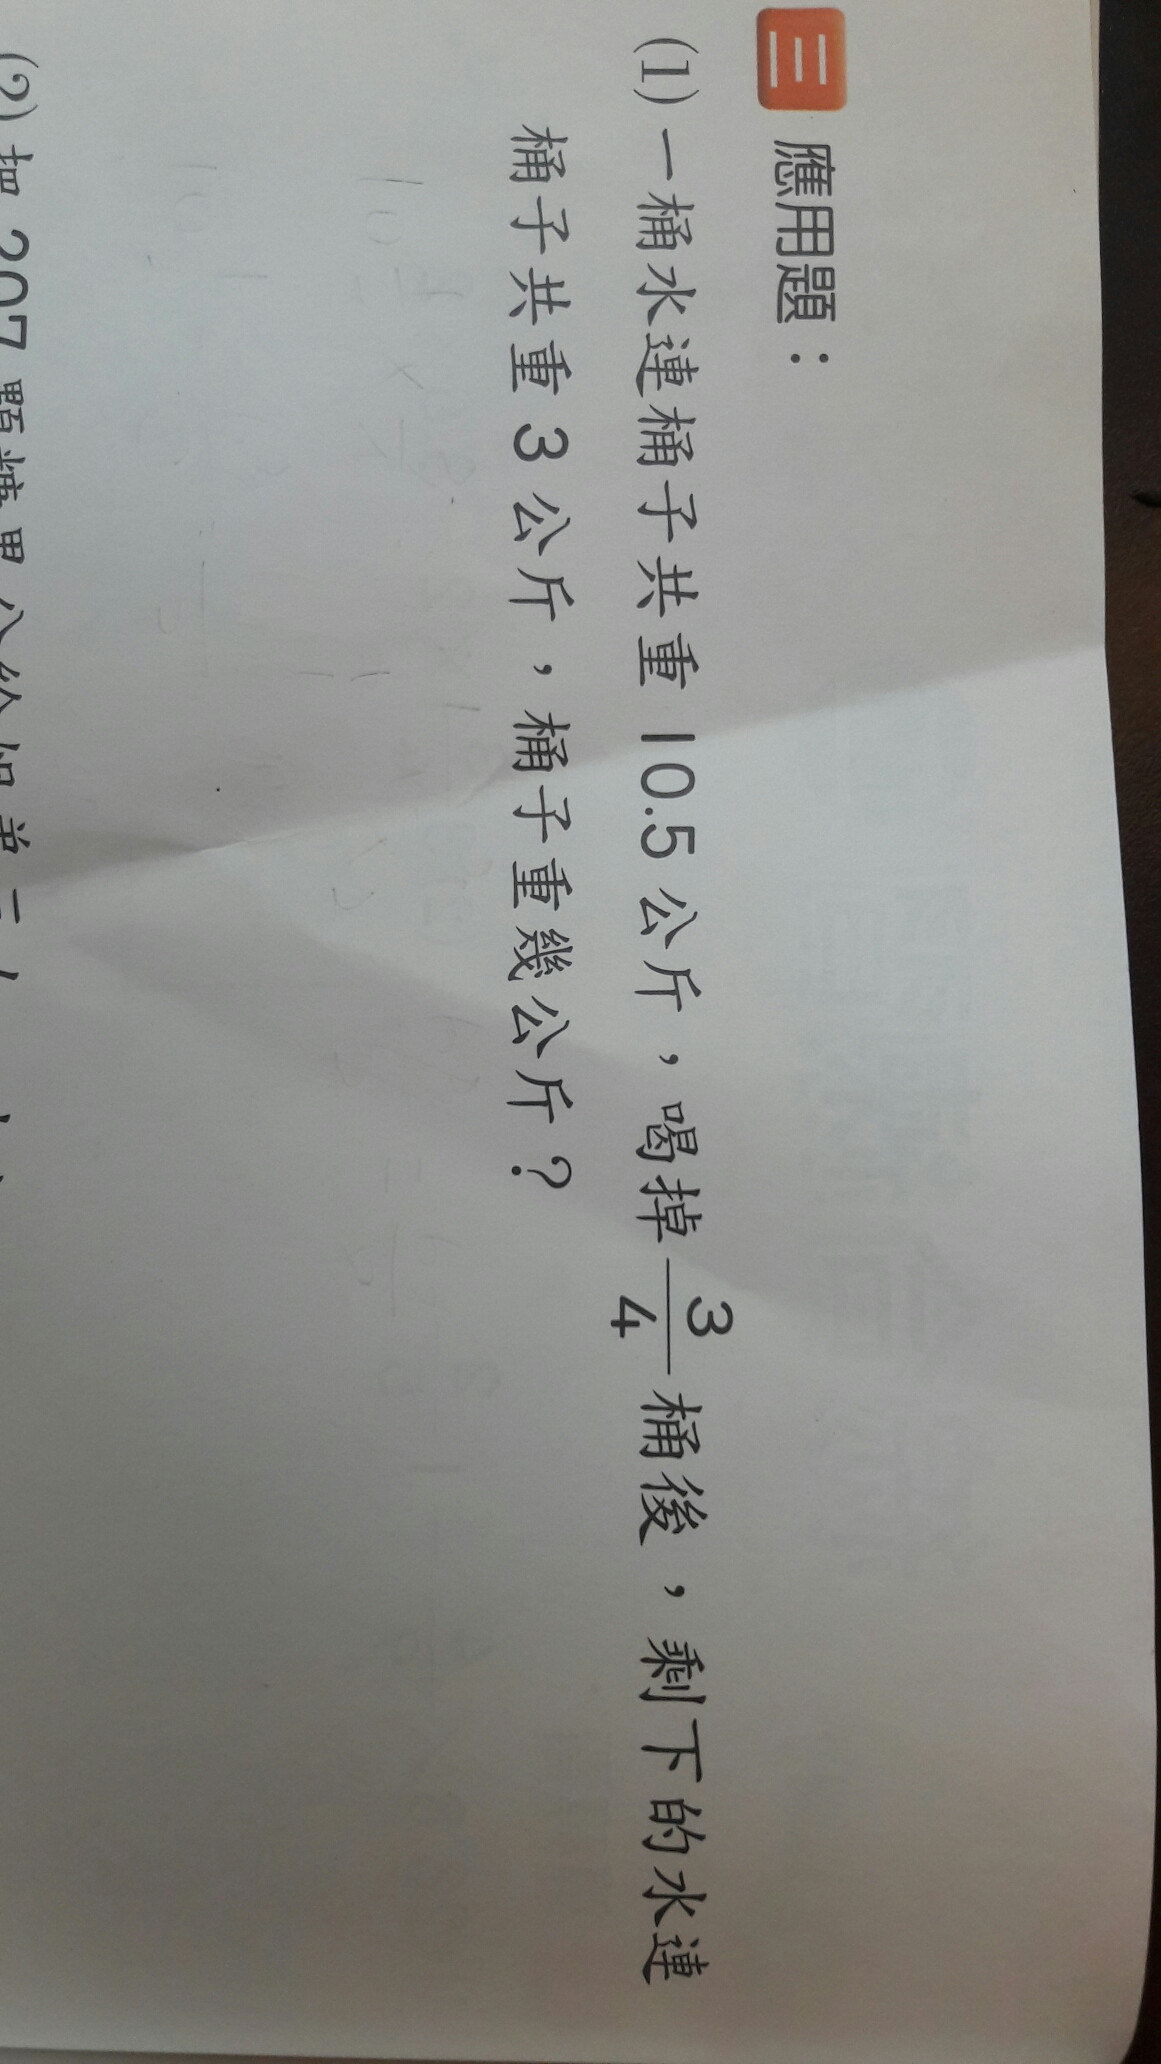 三 應用題：
(1) 一桶水連桶子共重 10.5 公斤，喝掉 3/4 桶後，剩下的水連
桶子共重 3 公斤，桶子重幾公斤？
(2) 把 207 顆糖果分給